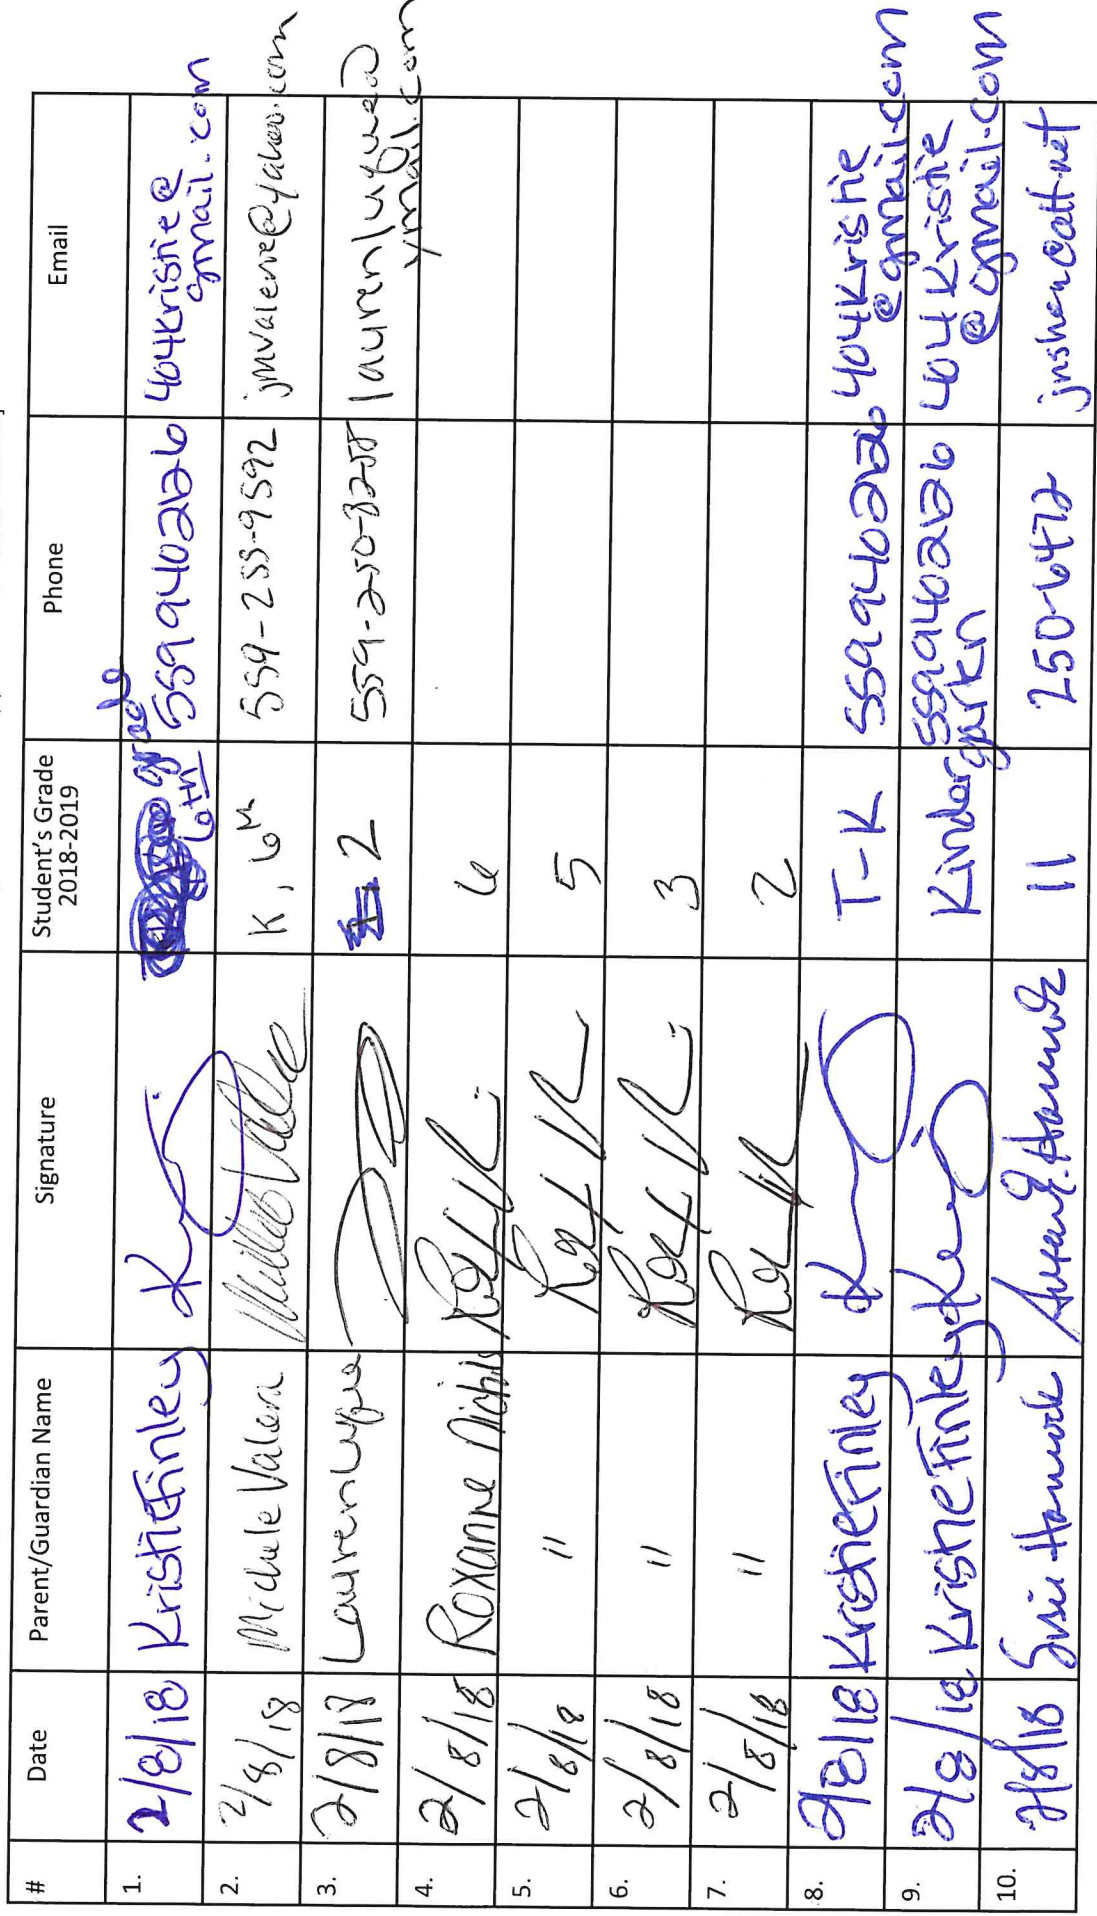 # Date Parent/Guardian Name Signature Student's Grade 2018-2019 Phone Email
1. 2/8/18 Kristie Finley 6th grade 5599940226 404kristie@gmail.com
2. 2/8/18 Michele Valera K, 6th 559-253-9592 @yahoo.com
3. 2/8/18 Lauren 2 559-250-8258 ymail.com
4. 2/8/18 Roxanne 6
5. 2/8/18 " 5
6. 2/8/18 " 3
7. 2/8/18 " 2
8. 2/8/18 Kristie Finley T-K 5599940226 404kristie@gmail.com
9. 2/8/18 Kristie Finley Kindergarten 5599940226 404kristie@gmail.com
10. 2/8/18 Susie 11 250-6472